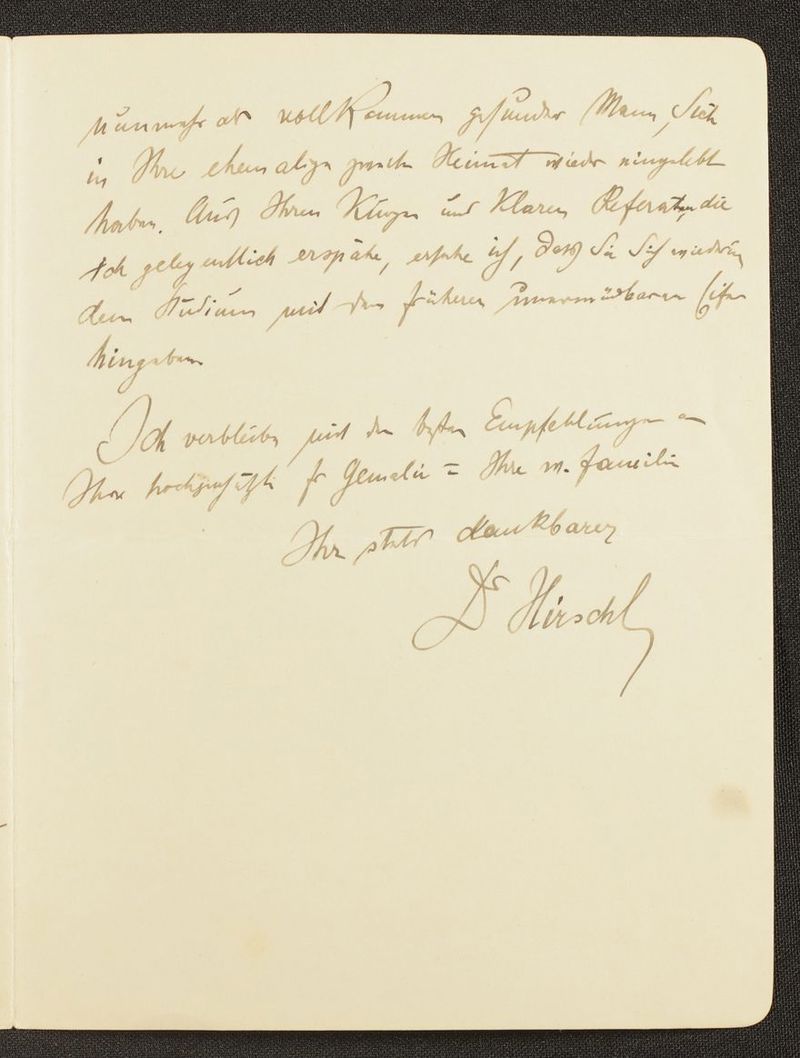 nunmehr als vollkommen gesunder Mann, Sich
in Ihre ehemalige zweite Heimat wieder eingelebt
haben. Aus Ihren kurzen und klaren Referaten, die
ich gelegentlich erspähe, ersehe ich, dass Sie Sich wiederum
dem Studium mit dem früheren unermüdbaren Eifer
hingeben.
Ich verbleibe mit den besten Empfehlungen an
Ihre hochgeschätzte Fr Gemalin = Ihre w. Familie
Ihr stets dankbarer
Dr Hirschl